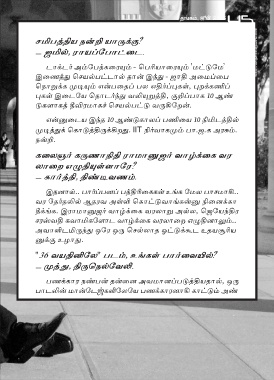 சமீபத்திய நன்றி யாருக்கு?
– ஜமீல், ராயப்பேட்டை.
டாக்டர் அம்பேத்கரையும் - பெரியாரையும் 'மட்டுமே'
இணைத்து செயல்பட்டால் தான் இந்து - ஜாதி அமைப்பை
நொறுக்க முடியும் என்பதைப் பல எதிர்ப்புகள், புறக்கணிப்
புகள் இடையே தொடர்ந்து வலியுறுத்தி, குறிப்பாக 10 ஆண்
டுகளாகத் தீவிரமாகச் செயல்பட்டு வருகிறேன்.
என்னுடைய இந்த 10 ஆண்டுகாலப் பணியை 10 நிமிடத்தில்
முடித்துக் கொடுத்திருக்கிறது. IIT நிர்வாகமும் பா.ஜ.க அரசும்.
நன்றி.
கலைஞர் கருணாநிதி ராமானுஜர் வாழ்க்கை வர
லாறை எழுதியுள்ளாரே?
– கார்த்தி, திண்டிவனம்.
இதனால்.. பார்ப்பனப் பத்திரிகைகள் உங்க மேல பாசமாகி..
வர தேர்தலில் ஆதரவு அள்ளி கொட்டுவாங்கன்னு நினைக்கா
தீங்க. இராமானுஜர் வாழ்க்கை வரலாறு அல்ல, ஜெயேந்திர
சரஸ்வதி சுவாமிகளோட வாழ்க்கை வரலாறை எழுதினாலும்..
அவாளிடமிருந்து ஒரே ஒரு செல்லாத ஓட்டுக்கூட உதயசூரிய
னுக்கு உழாது.
"36 வயதினிலே" படம், உங்கள் பார்வையில்?
– முத்து, திருநெல்வேலி.
பணக்கார நண்பன் தன்னை அவமானப்படுத்தியதால், ஒரு
பாடலின் மான்டேஜ்களிலேயே பணக்காரனாகி காட்டும் அண்